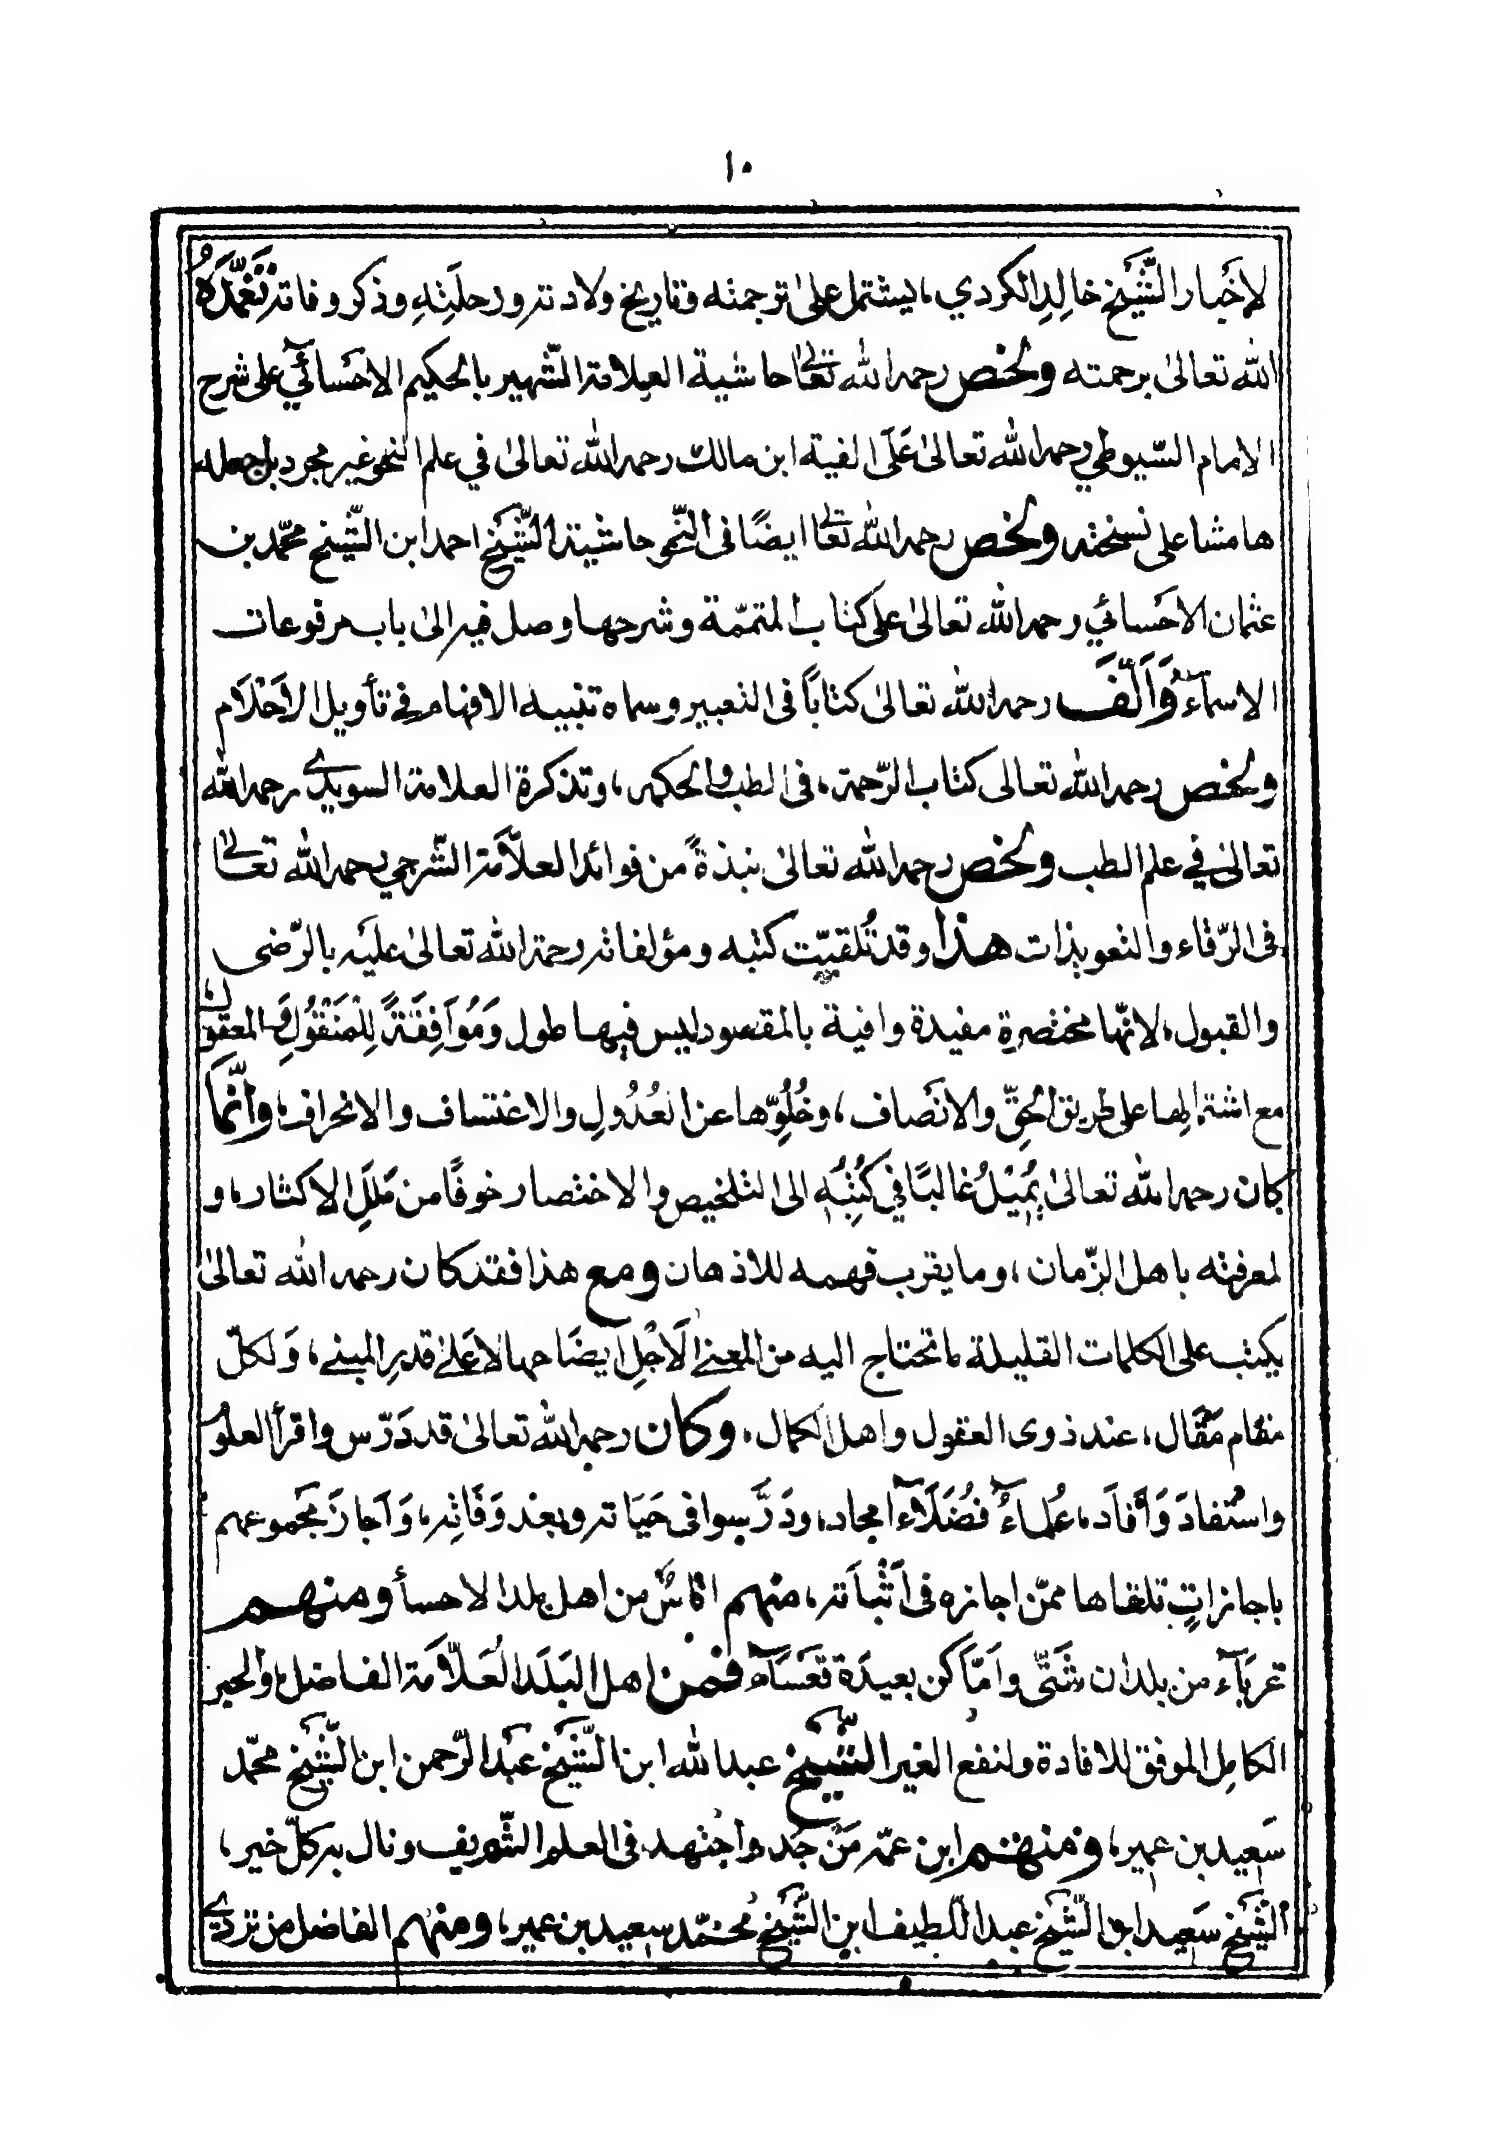 ١٠
لاخبار الشيخ خالد الكردي، يشتمل على ترجمته وتاريخ ولادته ورحلته وذكر وفاته تغمده
الله تعالى برحمته ولخص رحمه الله تعالى حاشية العلامة الشهير بالحكيم الاحسائي على شرح
الامام السيوطي رحمه الله تعالى على الفية ابن مالك رحمه الله تعالى في علم النحو غير مجرد بل جعله
هامشا على نسخته ولخص رحمه الله تعالى ايضًا في النحو حاشية الشيخ احمد ابن الشيخ محمد بن
عثمان الاحسائي رحمه الله تعالى على كتاب المتممة وشرحها وصل فيه الى باب مرفوعات
الاسماء وَاَلَّفَ رحمه الله تعالى كتابًا في التعبير وسماه تنبيه الافهام في تأويل الاَحْلَام
ولخص رحمه الله تعالى كتاب الرّحمة، في الطب والحكمه، وتذكرة العلامة السويدي رحمه الله
تعالى في علم الطب ولخص رحمه الله تعالى نبذةً من فوائد العلاّمة الشّرجي رحمه الله تعالى
في الرّقاء والتعويذات هذا وقد تُلقيّت كتبه ومؤلفاته رحمة الله تعالى عليه بالرّضى
والقبول، لانّها مختصرة مفيدة وافية بالمقصود ليس فيها طول وَمُوَافِقَةً لِلْمَنْقُولِ وَالمعقول
مع اشتمالها على طريق الحقِّ والانْصاف، وخُلُوِّها عن العُدُولِ والاعتساف والانحراف، وانّما
كان رحمه الله تعالىٰ يَمِيْلُ غالبًا في كُتُبِه الى التلخيص والاختصار خوفًا من مَلَلِ الاكثار، و
لمعرفته باهل الزّمان، وما يقرب فهمه للاذهان ومع هذا فقد كان رحمه الله تعالىٰ
يكتب على الكلمات القليلة ما تحتاج اليه من المعنى لاَجْلِ ايضَاحها لا عَلىٰ قدرِ المبنى، وَلكلّ
مقام مَقَال، عند ذوى العقول واهل الكمال، وكان رحمه الله تعالىٰ قد دَرّس واقرأ العلوم
واستفادَ وَأفاَد، عُلماءٌ فُضَلَاءُ امجاد، ودَرَّسوا في حَيَاته وبعد وَفَاتِه، وَاَجازَ مجموعهم
باجازاتٍ تلقاها ممّن اجازه في اَثْبَاته، منهم اناسٌ من اهل بلد الاحسأ ومنهم
غربَآء من بلدان شَتَّى واَمَاكن بعيدَة قعْسَآء فمن اهل البَلَد العَلاّمة الفاضل، والحبر
الكامِل الموفق للافادة ولنفع الغير الشّيخ عبد الله ابن الشّيخ عبْد الرّحمن ابن الشّيخ محمّد
سَعِيد بن عمير، ومنهم ابن عمّه مَنْ جَد، واجتهد، في العلم الشّريف ونال به كلّ خير،
الشّيخ سَعِيد ابن الشّيخ عبد اللّطيف ابن الشّيخ مُحمّد سعيد بن عمير، ومنهم الفاضل من تردى